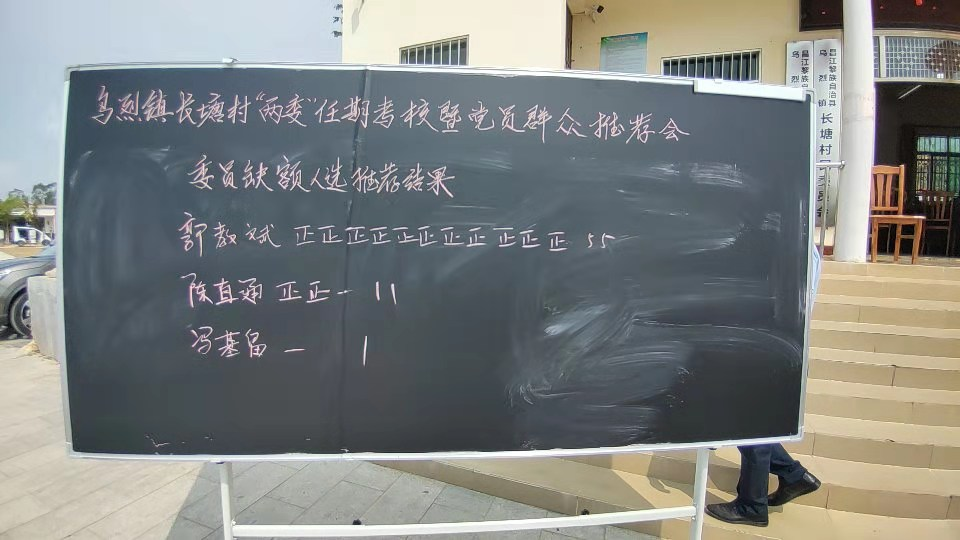 乌烈镇长塘村“两委”任期考核暨党员群众推荐会
委员缺额人选推荐结果
郭教斌 正正正正正正正正正正正 55
陈直通 正正一 11
冯基留 一 1
昌江黎族自治县
乌烈镇长塘村
昌江黎族自
乌烈